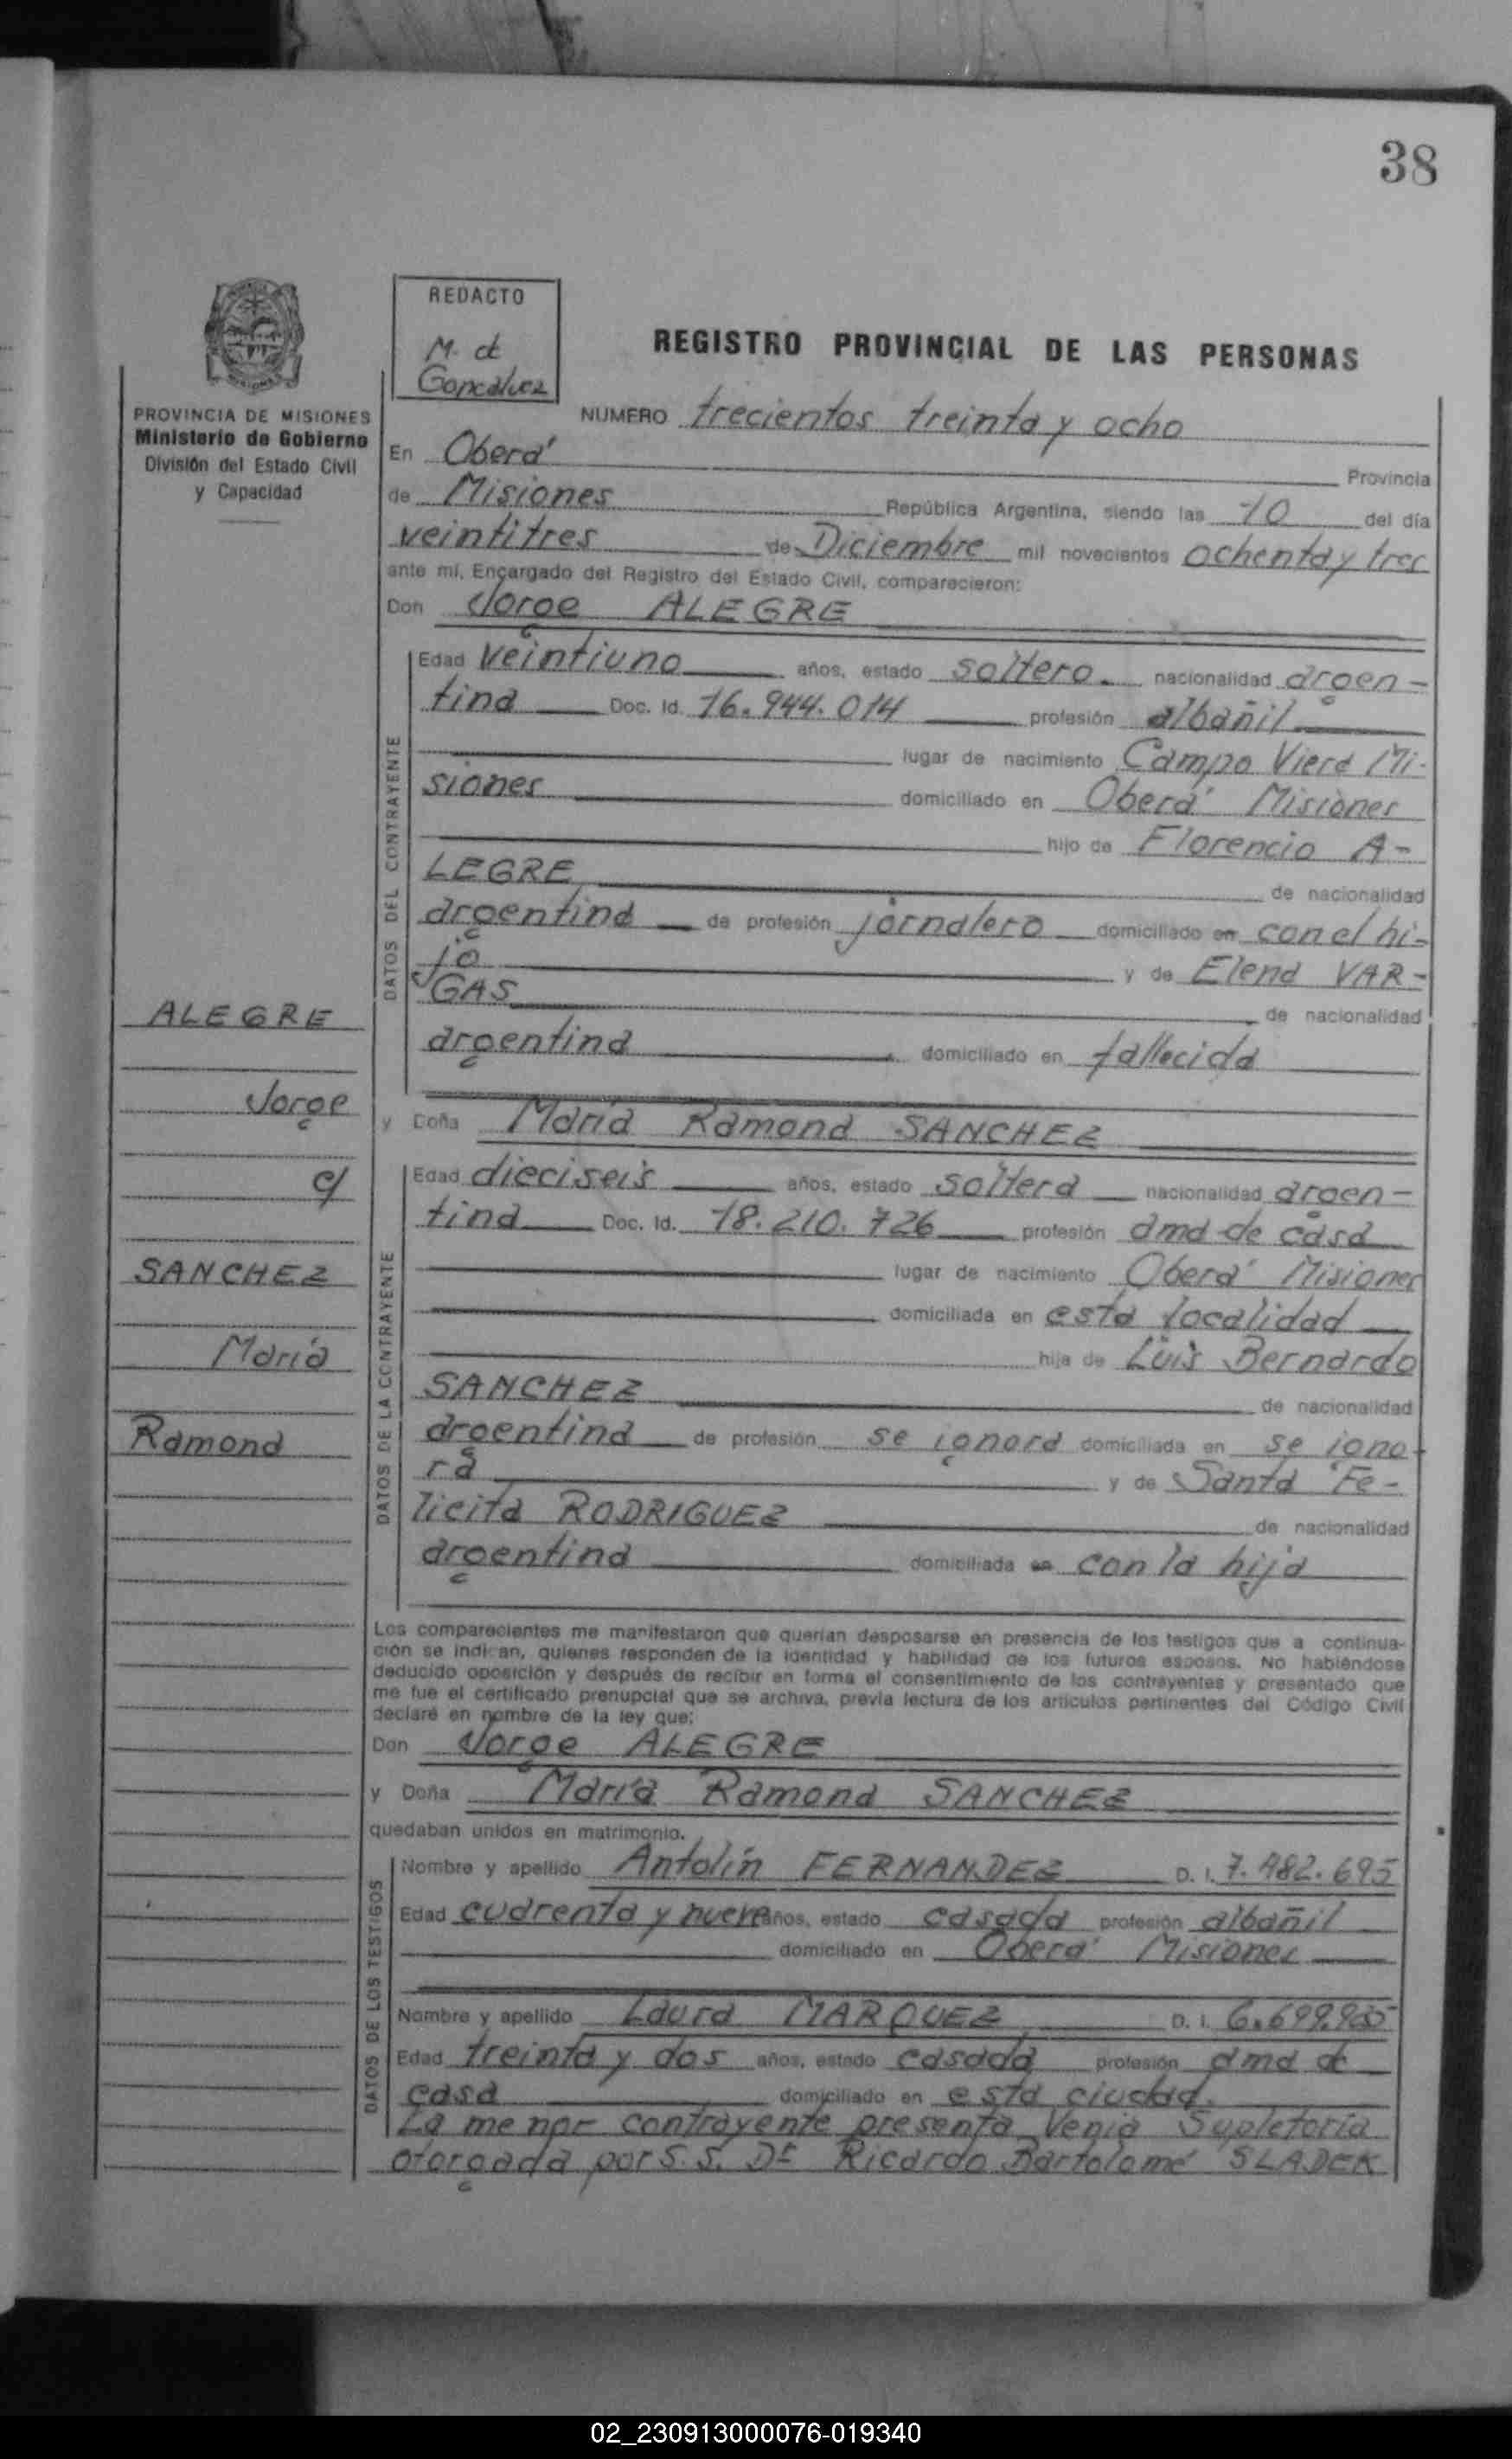 38
REDACTO
M. de
Goncalvez
REGISTRO PROVINCIAL DE LAS PERSONAS
PROVINCIA DE MISIONES
Ministerio de Gobierno
División del Estado Civil
y Capacidad
NUMERO trecientos treinta y ocho
En Oberá Provincia
de Misiones República Argentina, siendo las 10 del día
veintitres de Diciembre mil novecientos ochenta y tres
ante mí, Encargado del Registro del Estado Civil, comparecieron:
Don Jorge ALEGRE
DATOS DEL CONTRAYENTE
Edad veintiuno años, estado soltero nacionalidad argen-
tina Doc. Id. 16.944.014 profesión albañil
lugar de nacimiento Campo Viera Mi-
siones domiciliado en Oberá Misiones
hijo de Florencio A-
LEGRE de nacionalidad
argentina de profesión jornalero domiciliado en con el hi-
jo y de Elena VAR-
GAS de nacionalidad
argentina domiciliado en fallecida
y Doña María Ramona SANCHEZ
DATOS DE LA CONTRAYENTE
Edad dieciseis años, estado soltera nacionalidad argen-
tina Doc. Id. 18.210.726 profesión ama de casa
lugar de nacimiento Oberá Misiones
domiciliada en esta localidad
hija de Luis Bernardo
SANCHEZ de nacionalidad
argentina de profesión se ignora domiciliada en se igno-
ra y de Santa Fe-
licita RODRIGUEZ de nacionalidad
argentina domiciliada en con la hija
ALEGRE
Jorge
c/
SANCHEZ
María
Ramona
Los comparecientes me manifestaron que querían desposarse en presencia de los testigos que a continua-
ción se indican, quienes responden de la identidad y habilidad de los futuros esposos. No habiéndose
deducido oposición y después de recibir en forma el consentimiento de los contrayentes y presentado que
me fue el certificado prenupcial que se archiva, previa lectura de los artículos pertinentes del Código Civil
declaré en nombre de la ley que:
Don Jorge ALEGRE
y Doña María Ramona SANCHEZ
quedaban unidos en matrimonio.
DATOS DE LOS TESTIGOS
Nombre y apellido Antolín FERNANDEZ D. I. 7.482.695
Edad cuarenta y nueve años, estado casado profesión albañil
domiciliado en Oberá Misiones
Nombre y apellido Laura MARQUEZ D. I. 6.699.
Edad treinta y dos años, estado casada profesión ama de
casa domiciliado en esta ciudad.
La menor contrayente presenta Venia Supletoria
otorgada por S.S. Dr Ricardo Bartolomé SLADEK
02_230913000076-019340